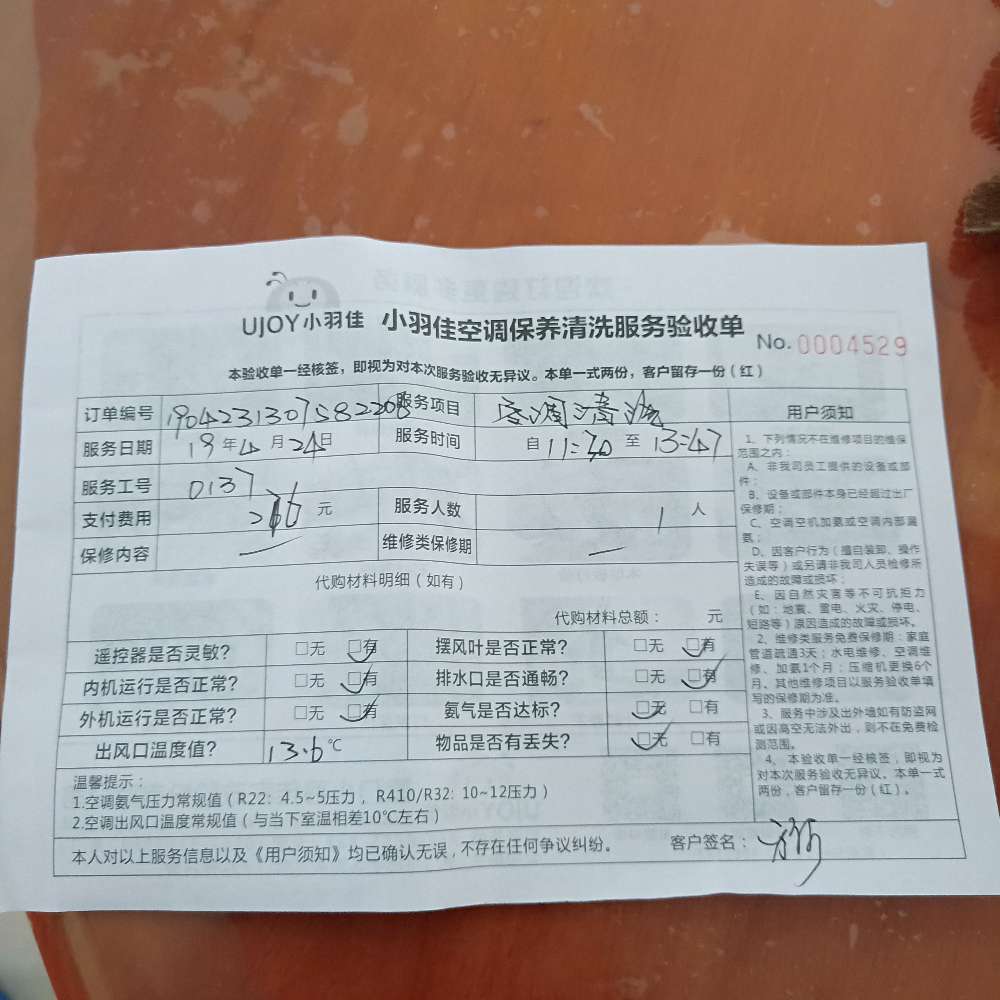 UJOY小羽佳 小羽佳空调保养清洗服务验收单 No.0004529
本验收单一经核签，即视为对本次服务验收无异议。本单一式两份，客户留存一份（红）
订单编号 190423130758220 服务项目 空调清洗
服务日期 19年4月24日 服务时间 自11:30至13:47
服务工号 0137
支付费用 元 服务人数 1人
保修内容 — 维修类保修期 —
代购材料明细（如有）
代购材料总额： 元
遥控器是否灵敏? □无 □有 摆风叶是否正常? □无 □有
内机运行是否正常? □无 □有 排水口是否通畅? □无 □有
外机运行是否正常? □无 □有 氨气是否达标? □无 □有
出风口温度值? 13.6℃ 物品是否有丢失? □无 □有
温馨提示：
1.空调氨气压力常规值（R22: 4.5~5压力， R410/R32: 10~12压力）
2.空调出风口温度常规值（与当下室温相差10℃左右）
本人对以上服务信息以及《用户须知》均已确认无误，不存在任何争议纠纷。 客户签名：
用户须知
1、下列情况不在维修项目的维保
范围之内：
A、非我司员工提供的设备或部
件；
B、设备或部件本身已经超过出厂
保修期；
C、空调空机加氨或空调内部漏
氨；
D、因客户行为（擅自装卸、操作
失误等）或另请非我司人员检修所
造成的故障或损坏；
E、因自然灾害等不可抗拒力
（如：地震、雷电、火灾、停电、
短路等）原因造成的故障或损坏。
2、维修类服务免费保修期：家庭
管道疏通3天；水电维修、空调维
修、加氨1个月；压缩机更换6个
月。其他维修项目以服务验收单填
写的保修期为准。
3、服务中涉及出外墙如有防盗网
或因高空无法外出，则不在免费检
测范围。
4、本验收单一经核签，即视为
对本次服务验收无异议。本单一式
两份，客户留存一份（红）。